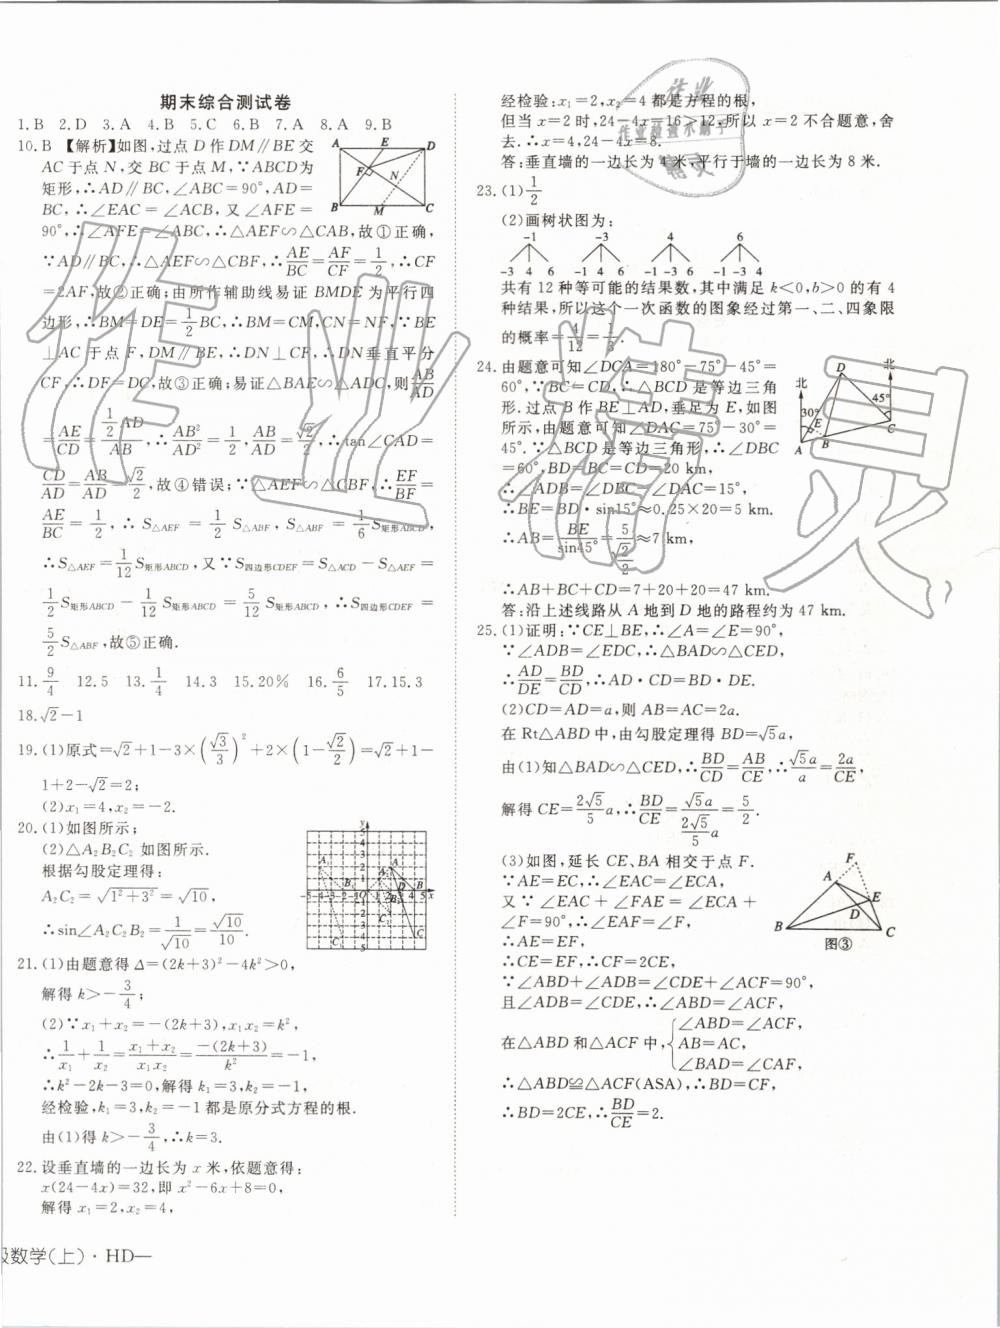 期末综合测试卷
1.B 2.D 3.A 4.B 5.C 6.B 7.A 8.A 9.B
10.B 【解析】如图,过点D作DM∥BE交
AC于点N,交BC于点M,∵ABCD为
矩形,∴AD∥BC,∠ABC=90°,AD=
BC,∴∠EAC=∠ACB,又∠AFE=
90°,∴∠AFE=∠ABC,∴△AEF∽△CAB,故①正确,
∵AD∥BC,∴△AEF∽△CBF,∴AE/BC=AF/CF=1/2,∴CF
=2AF,故②正确;由所作辅助线易证BMDE为平行四
边形,∴BM=DE=1/2BC,∴BM=CM,CN=NF,∵BE
⊥AC于点F,DM∥BE,∴DN⊥CF,∴DN垂直平分
CF,∴DF=DC,故③正确;易证△BAE∽△ADC,则AB/AD
=AE/CD=(1/2AD)/AB,∴AB²/AD²=1/2,AB/AD=√2/2,∴tan∠CAD=
CD/AD=AB/AD=√2/2,故④错误;∵△AEF∽△CBF,∴EF/BF=
AE/BC=1/2,∴S△AEF=1/2S△ABF,S△ABF=1/6S矩形ABCD,
∴S△AEF=1/12S矩形ABCD,又∵S四边形CDEF=S△ACD−S△AEF=
1/2S矩形ABCD−1/12S矩形ABCD=5/12S矩形ABCD,∴S四边形CDEF=
5/2S△ABF,故⑤正确.
11.9/4 12.5 13.1/4 14.3 15.20% 16.6/5 17.15.3
18.√2−1
19.(1)原式=√2+1−3×(√3/3)²+2×(1−√2/2)=√2+1−
1+2−√2=2;
(2)x₁=4,x₂=−2.
20.(1)如图所示;
(2)△A₂B₂C₂如图所示.
根据勾股定理得:
A₂C₂=√(1²+3²)=√10,
∴sin∠A₂C₂B₂=1/√10=√10/10.
21.(1)由题意得Δ=(2k+3)²−4k²>0,
解得k>−3/4;
(2)∵x₁+x₂=−(2k+3),x₁x₂=k²,
∴1/x₁+1/x₂=(x₁+x₂)/(x₁x₂)=−(2k+3)/k²=−1,
∴k²−2k−3=0,解得k₁=3,k₂=−1,
经检验,k₁=3,k₂=−1都是原分式方程的根.
由(1)得k>−3/4,∴k=3.
22.设垂直墙的一边长为x米,依题意得:
x(24−4x)=32,即x²−6x+8=0,
解得x₁=2,x₂=4,
级数学(上)·HD—
经检验:x₁=2,x₂=4都是方程的根,
但当x=2时,24−4x=16>12,所以x=2不合题意,舍
去.∴x=4,24−4x=8.
答:垂直墙的一边长为4米,平行于墙的一边长为8米.
23.(1)1/2
(2)画树状图为:
−1 −3 4 6
−3 4 6 −1 4 6 −1 −3 6 −1 −3 4
共有12种等可能的结果数,其中满足k<0,b>0的有4
种结果,所以这个一次函数的图象经过第一、二、四象限
的概率=4/12=1/3.
24.由题意可知∠DCA=180°−75°−45°=
60°,∵BC=CD,∴△BCD是等边三角
形.过点B作BE⊥AD,垂足为E,如图
所示,由题意可知∠DAC=75°−30°=
45°.∵△BCD是等边三角形,∴∠DBC
=60°,BD=BC=CD=20 km,
∴∠ADB=∠DBC−∠DAC=15°,
∴BE=BD·sin15°≈0.25×20=5 km.
∴AB=BE/sin45°=5/(√2/2)≈7 km,
∴AB+BC+CD=7+20+20=47 km.
答:沿上述线路从A地到D地的路程约为47 km.
25.(1)证明:∵CE⊥BE,∴∠A=∠E=90°,
∵∠ADB=∠EDC,∴△BAD∽△CED,
∴AD/DE=BD/CD,∴AD·CD=BD·DE.
(2)CD=AD=a,则AB=AC=2a.
在Rt△ABD中,由勾股定理得BD=√5a,
由(1)知△BAD∽△CED,∴BD/CD=AB/CE,∴√5a/a=2a/CE,
解得CE=2√5/5a,∴BD/CE=√5a/(2√5/5a)=5/2.
(3)如图,延长CE、BA相交于点F.
∵AE=EC,∴∠EAC=∠ECA,
又∵∠EAC+∠FAE=∠ECA+
∠F=90°,∴∠EAF=∠F,
∴AE=EF,
∴CE=EF,∴CF=2CE,
∵∠ABD+∠ADB=∠CDE+∠ACF=90°,
且∠ADB=∠CDE,∴∠ABD=∠ACF,
在△ABD和△ACF中,{∠ABD=∠ACF,
AB=AC,
∠BAD=∠CAF,
∴△ABD≌△ACF(ASA),∴BD=CF,
∴BD=2CE,∴BD/CE=2.
图③
作业精灵